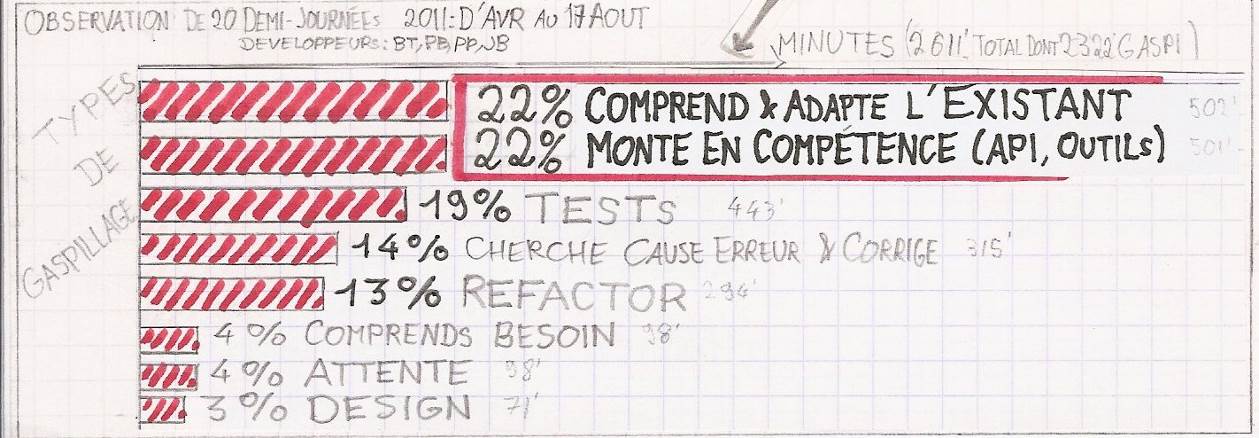 OBSERVATION DE 20 DEMI-JOURNÉES 2011: D'AVR AU 17 AOUT
DEVELOPPEURS: BT, PB, PP, JB
MINUTES (2611' TOTAL DONT 2322' GASPI)
TYPES DE GASPILLAGE
22% COMPREND & ADAPTE L'EXISTANT 502'
22% MONTE EN COMPÉTENCE (API, OUTILS) 501'
19% TESTS 443'
14% CHERCHE CAUSE ERREUR & CORRIGE 315'
13% REFACTOR 294'
4% COMPRENDS BESOIN 98'
4% ATTENTE 98'
3% DESIGN 71'